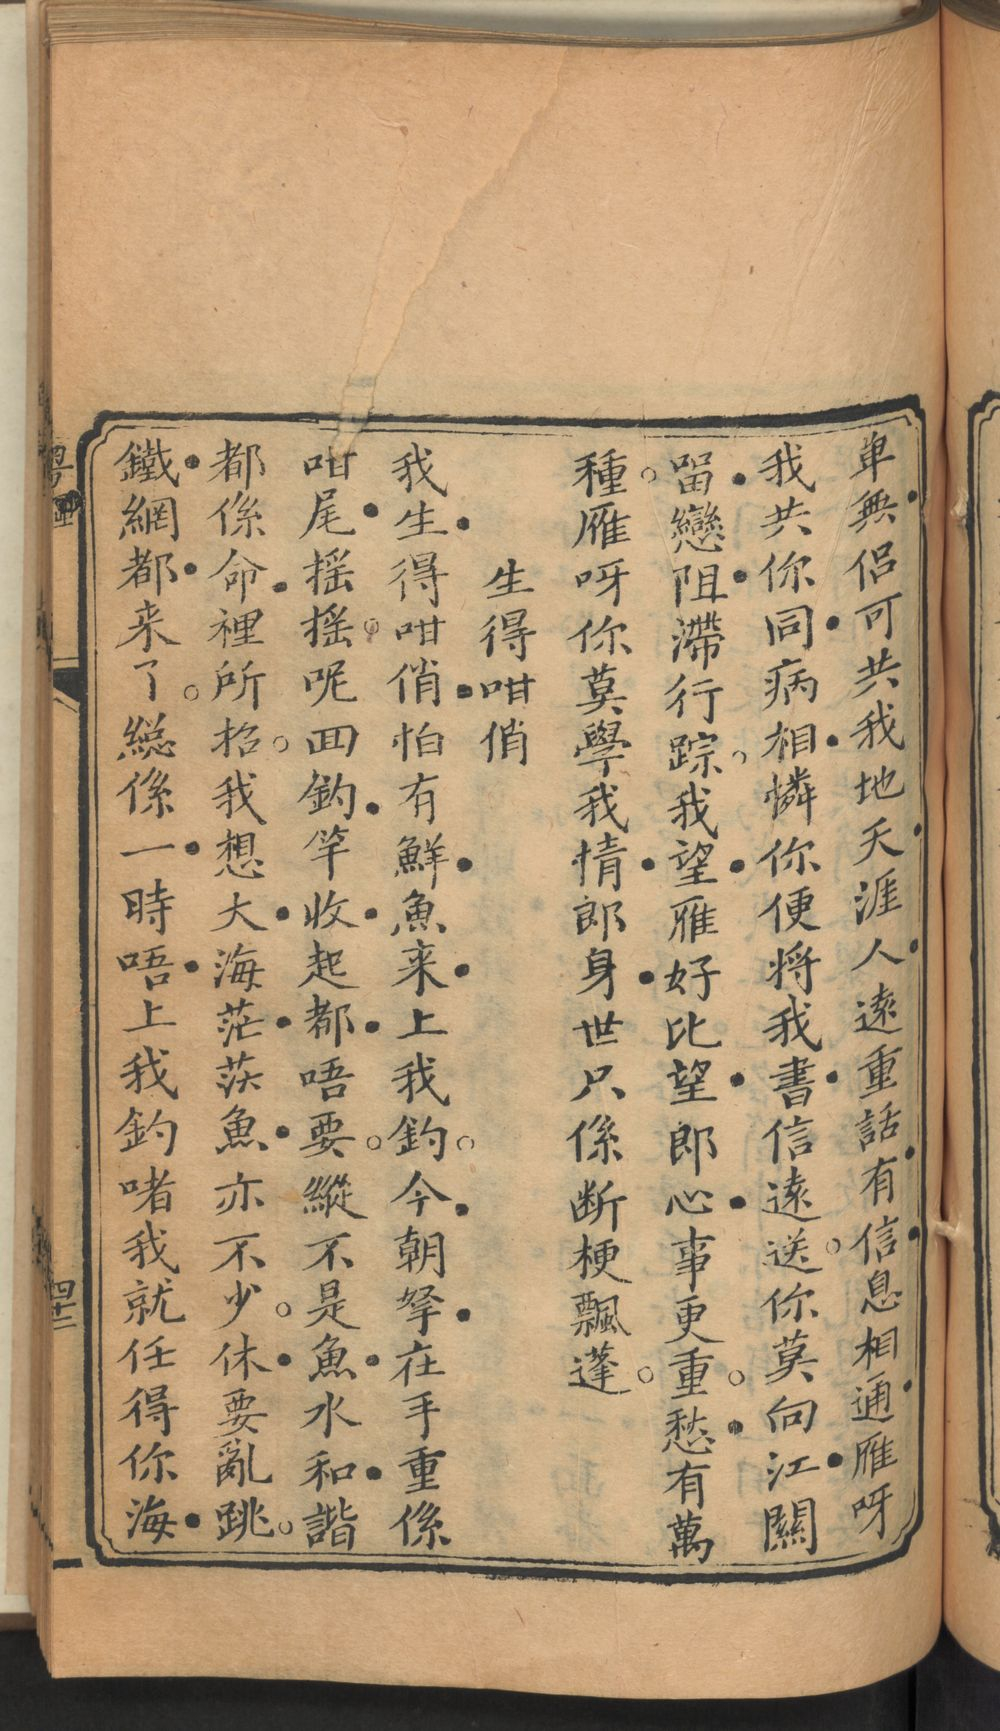 单無侣可共我地天涯人遠重話有信息相通雁呀
我共你同病相憐你便將我書信遠送你莫向江關
畱戀阻滯行踪我望雁好比望郎心事更重愁有萬
種雁呀你莫學我情郎身世只係断梗飄蓬
生得咁俏
我生得咁俏怕有鮮魚来上我釣今朝拏在手重係
咁尾摇摇呢囬釣竿收起都唔要縱不是魚水和諧
都係命裡所招我想大海茫茫魚亦不少休要亂跳
鐵網都来了總係一時唔上我釣啫我就任得你海
粤
四十二